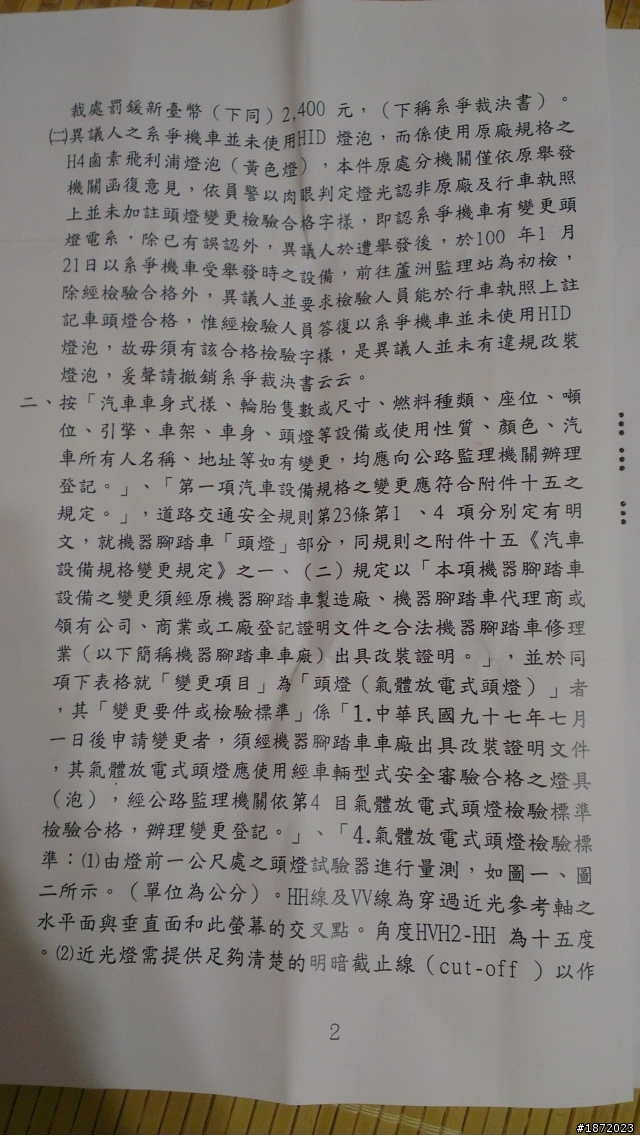 裁處罰鍰新臺幣（下同）2,400 元，（下稱系爭裁決書）。
㈡異議人之系爭機車並未使用HID 燈泡，而係使用原廠規格之
H4鹵素飛利浦燈泡（黃色燈），本件原處分機關僅依原舉發
機關函復意見，依員警以肉眼判定燈光認非原廠及行車執照
上並未加註頭燈變更檢驗合格字樣，即認系爭機車有變更頭
燈電系，除已有誤認外，異議人於遭舉發後，於100 年1 月
21日以系爭機車受舉發時之設備，前往蘆洲監理站為初檢，
除經檢驗合格外，異議人並要求檢驗人員能於行車執照上註
記車頭燈合格，惟經檢驗人員答復以系爭機車並未使用HID
燈泡，故毋須有該合格檢驗字樣，是異議人並未有違規改裝
燈泡，爰聲請撤銷系爭裁決書云云。
二、按「汽車車身式樣、輪胎隻數或尺寸、燃料種類、座位、噸
位、引擎、車架、車身、頭燈等設備或使用性質、顏色、汽
車所有人名稱、地址等如有變更，均應向公路監理機關辦理
登記。」、「第一項汽車設備規格之變更應符合附件十五之
規定。」，道路交通安全規則第23條第1 、4 項分別定有明
文，就機器腳踏車「頭燈」部分，同規則之附件十五《汽車
設備規格變更規定》之一、（二）規定以「本項機器腳踏車
設備之變更須經原機器腳踏車製造廠、機器腳踏車代理商或
領有公司、商業或工廠登記證明文件之合法機器腳踏車修理
業（以下簡稱機器腳踏車車廠）出具改裝證明。」，並於同
項下表格就「變更項目」為「頭燈（氣體放電式頭燈）」者
，其「變更要件或檢驗標準」係「1.中華民國九十七年七月
一日後申請變更者，須經機器腳踏車車廠出具改裝證明文件
，其氣體放電式頭燈應使用經車輛型式安全審驗合格之燈具
（泡），經公路監理機關依第4 目氣體放電式頭燈檢驗標準
檢驗合格，辦理變更登記。」、「4.氣體放電式頭燈檢驗標
準：⑴由燈前一公尺處之頭燈試驗器進行量測，如圖一、圖
二所示。（單位為公分）。HH線及VV線為穿過近光參考軸之
水平面與垂直面和此螢幕的交叉點。角度HVH2-HH 為十五度
。⑵近光燈需提供足夠清楚的明暗截止線（cut-off ）以作
2
#1872023